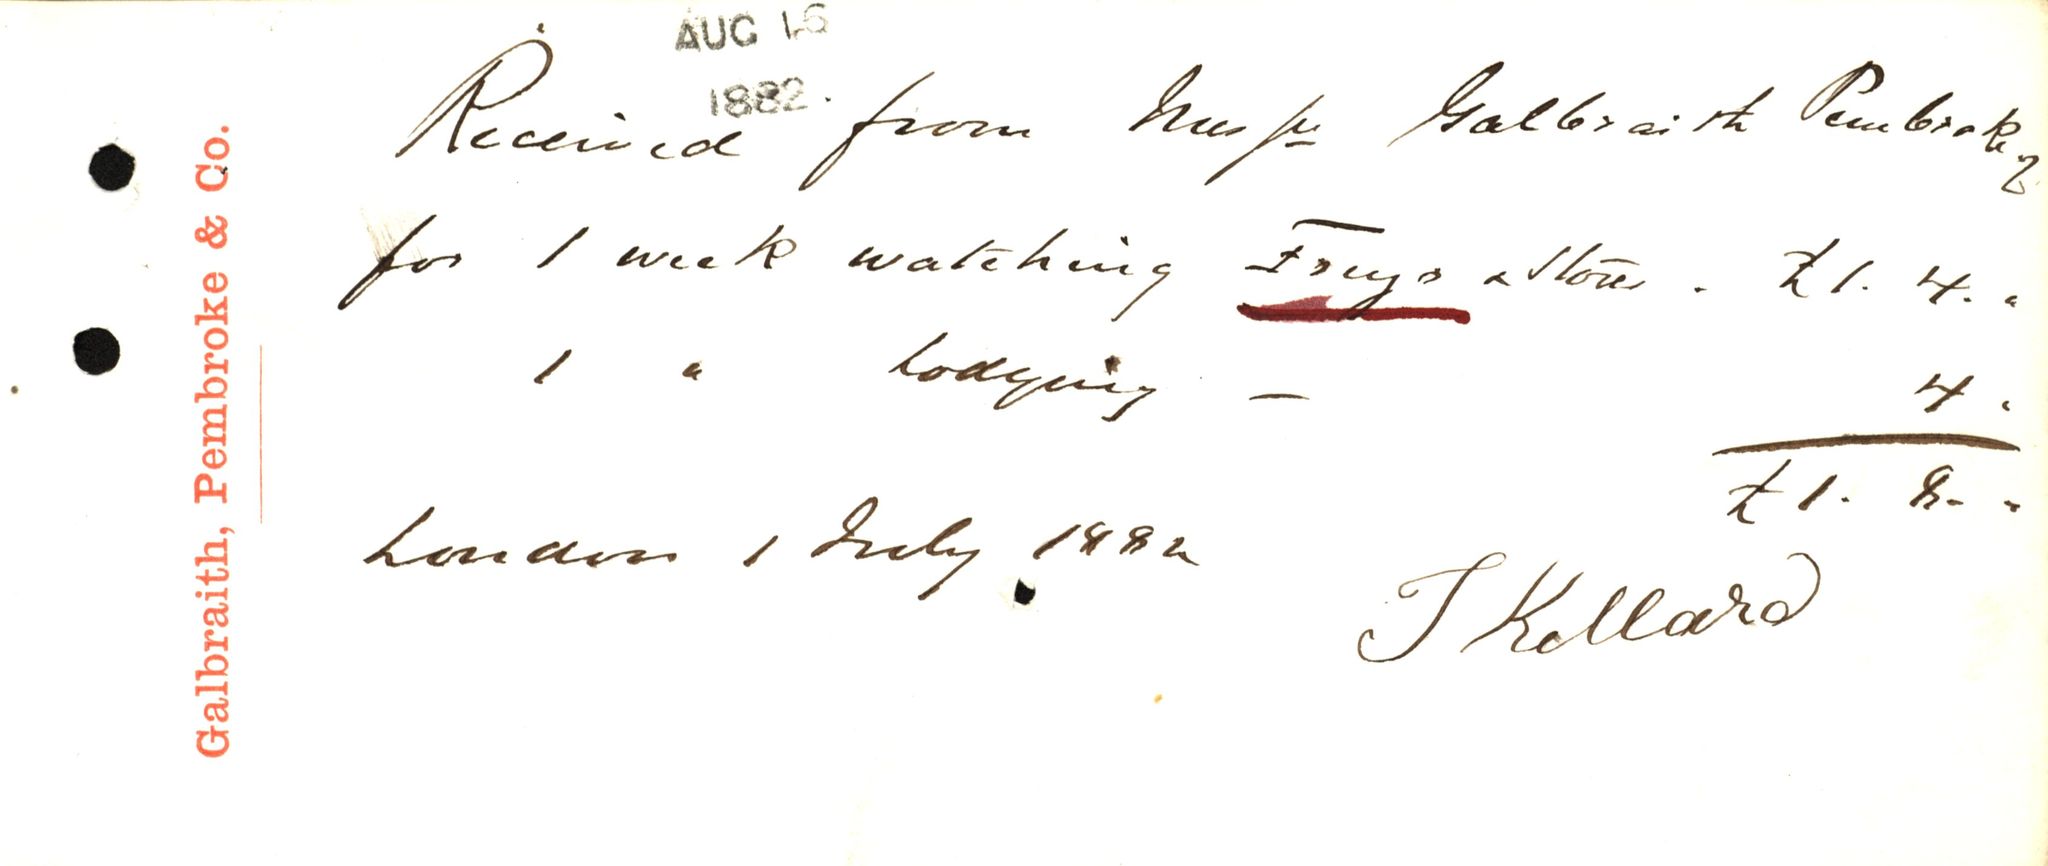 Galbraith, Pembroke & Co.
AUG 16
1882.
Received from Messrs Galbraith Pembroke
for 1 week watching Freya & Stores . £1. 4. "
1 " Lodging — 4 "
£1. 8. "
London 1 July 1882
J Kellard